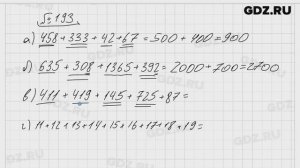 GDZ.RU
№193.
а) 458 + 333 + 42 + 67 = 500 + 400 = 900
б) 635 + 308 + 1365 + 392 = 2000 + 700 = 2700
в) 411 + 419 + 145 + 725 + 87 =
г) 11 + 12 + 13 + 14 + 15 + 16 + 17 + 18 + 19 =